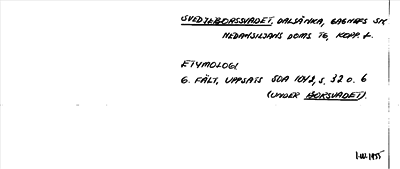 SVEDTJBORSSVADET, DALSÄNKA, GAGNEFS SN
NEDANSILJANS DOMS TG, KOPP. L.
ETYMOLOGI
G. FÄLT, UPPSATS SOA 1042, S. 32 O. 6
(UNDER BORSVADET).
1.III.1955